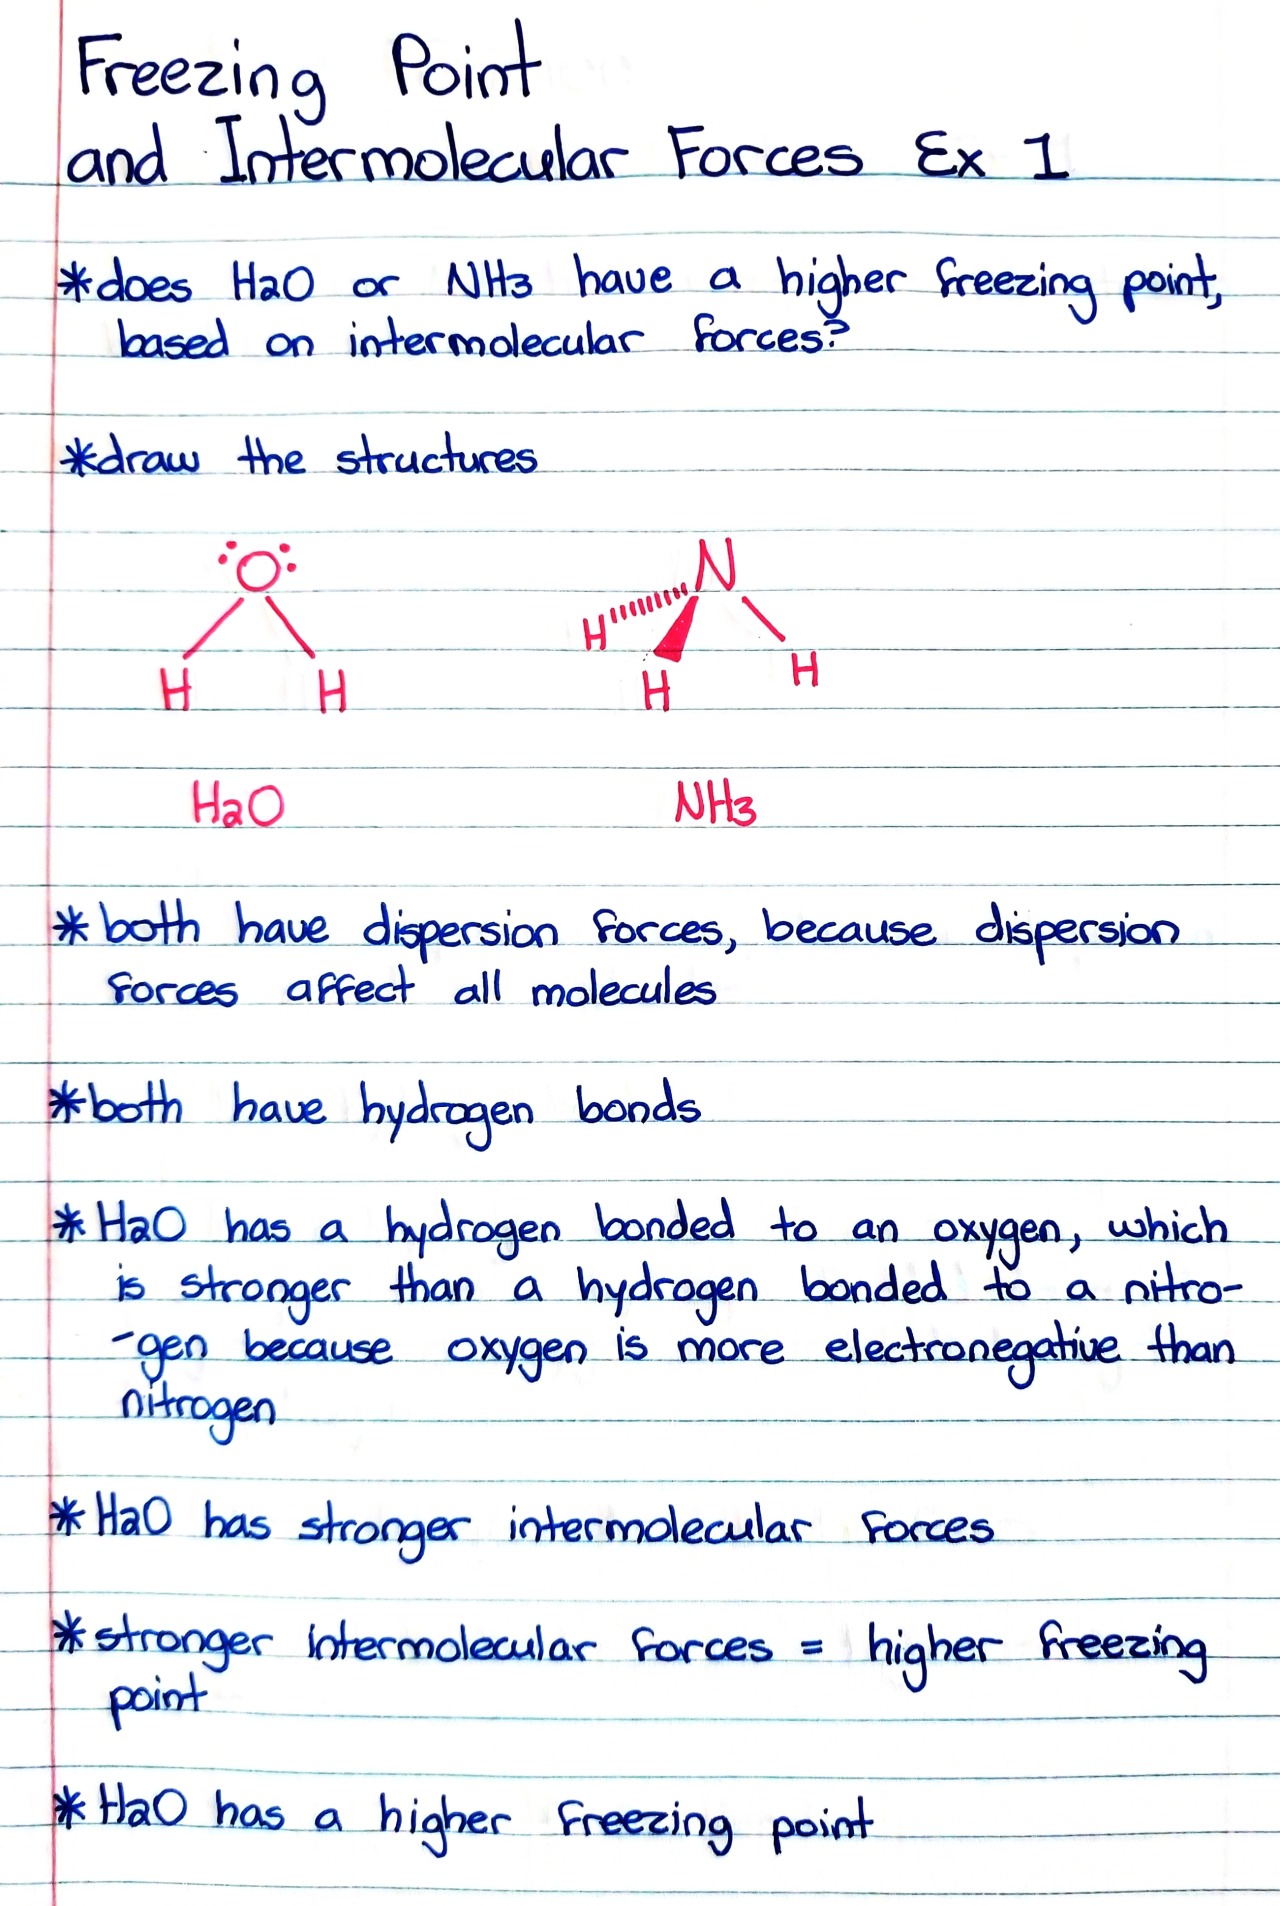 Freezing Point
and Intermolecular Forces Ex 1
*does H2O or NH3 have a higher freezing point,
based on intermolecular forces?
*draw the structures
:O:
N
H
H H H H
H2O NH3
*both have dispersion forces, because dispersion
forces affect all molecules
*both have hydrogen bonds
*H2O has a hydrogen bonded to an oxygen, which
is stronger than a hydrogen bonded to a nitro-
-gen because oxygen is more electronegative than
nitrogen
*H2O has stronger intermolecular forces
*stronger intermolecular forces = higher freezing
point
*H2O has a higher freezing point